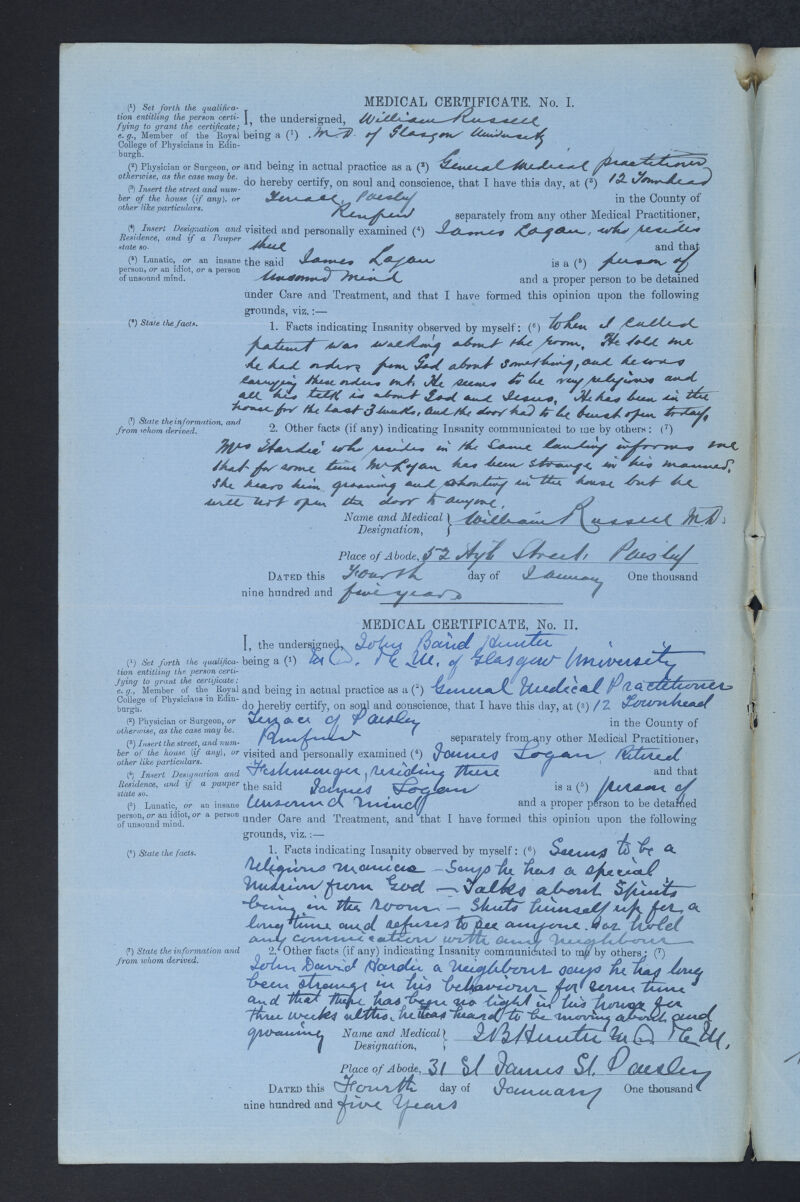 MEDICAL CERTIFICATE. No. I.
(¹) Set forth the qualifica-
tion entitling the person certi-
fying to grant the certificate;
e.g., Member of the Royal
College of Physicians in Edin-
burgh.
(²) Physician or Surgeon, or
otherwise, as the case may be.
(³) Insert the street and num-
ber of the house (if any), or
other like particulars.
(⁴) Insert Designation and
Residence, and if a Pauper
state so.
(⁵) Lunatic, or an insane
person, or an idiot, or a person
of unsound mind.
(⁶) State the facts.
(⁷) State the information, and
from whom derived.
I, the undersigned, William Russell
being a (¹) M.D. of Glasgow University
and being in actual practice as a (²) General Medical practitioner
do hereby certify, on soul and conscience, that I have this day, at (³) 12 Townhead
Terrace, Paisley in the County of
Renfrew separately from any other Medical Practitioner,
visited and personally examined (⁴) James Logan, who resides
there and that
the said James Logan is a (⁵) person of
unsound mind and a proper person to be detained
under Care and Treatment, and that I have formed this opinion upon the following
grounds, viz.:—
1. Facts indicating Insanity observed by myself: (⁶) When I called
patient was walking about the room. He told me
he had orders from God about something, and he was
carrying these orders out. He seems to be very religious and
all his talk is about God and Jesus. He has been in the
house for the last 3 weeks, and the door had to be burst open today.
2. Other facts (if any) indicating Insanity communicated to me by others: (⁷)
Mrs Hardie who resides in the same landing informs me
that for some time Mr Logan has been strange in his manner.
She hears him groaning and shouting in the house but he
will not open the door to anyone.
Name and Medical Designation, William Russell M.D.
Place of Abode, 52 High Street, Paisley
DATED this Fourth day of January One thousand
nine hundred and five years
MEDICAL CERTIFICATE, No. II.
(¹) Set forth the qualifica-
tion entitling the person certi-
fying to grant the certificate;
e.g., Member of the Royal
College of Physicians in Edin-
burgh.
(²) Physician or Surgeon, or
otherwise, as the case may be.
(³) Insert the street, and num-
ber of the house (if any), or
other like particulars.
(⁴) Insert Designation and
Residence, and if a pauper
state so.
(⁵) Lunatic, or an insane
person, or an idiot, or a person
of unsound mind.
(⁶) State the facts.
(⁷) State the information and
from whom derived.
I, the undersigned, John Baird Hunter
being a (¹) M.D. &C.M. of Glasgow University
and being in actual practice as a (²) General Medical Practitioner
do hereby certify, on soul and conscience, that I have this day, at (³) 12 Townhead
Terrace of Paisley in the County of
Renfrew separately from any other Medical Practitioner,
visited and personally examined (⁴) James Logan, Retired
Fishmonger, residing there and that
the said James Logan is a (⁵) person of
unsound mind and a proper person to be detained
under Care and Treatment, and that I have formed this opinion upon the following
grounds, viz.:—
1. Facts indicating Insanity observed by myself: (⁶) Seems to be a
religious maniac – Says he has a special
mission from God – Talks about Spirits
being in the room – Shuts himself up for a
long time and refuses to see anyone or hold
any communication with any neighbour
2. Other facts (if any) indicating Insanity communicated to me by others: (⁷)
John David Hardie a neighbour says he has long
been strange in his behaviour for some time
and that there has been no light in his house for
three weeks altho. he was heard to be moving about and
groaning
Name and Medical Designation, J B Hunter M.D. &C.M.
Place of Abode, 31 St James St. Paisley
DATED this Fourth day of January One thousand
nine hundred and five Years